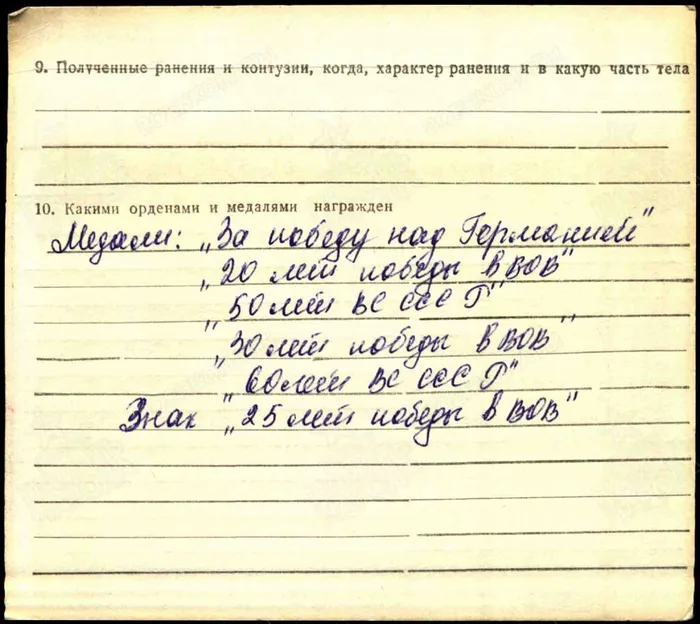 9. Полученные ранения и контузии, когда, характер ранения и в какую часть тела
10. Какими орденами и медалями награжден
Медали: „За победу над Германией"
„20 лет победы в ВОВ"
„50 лет ВС СССР"
„30 лет победы в ВОВ"
„60 лет ВС СССР"
Знак „25 лет победы в ВОВ"